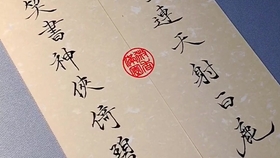 連天射白鹿
笑書神俠倚碧